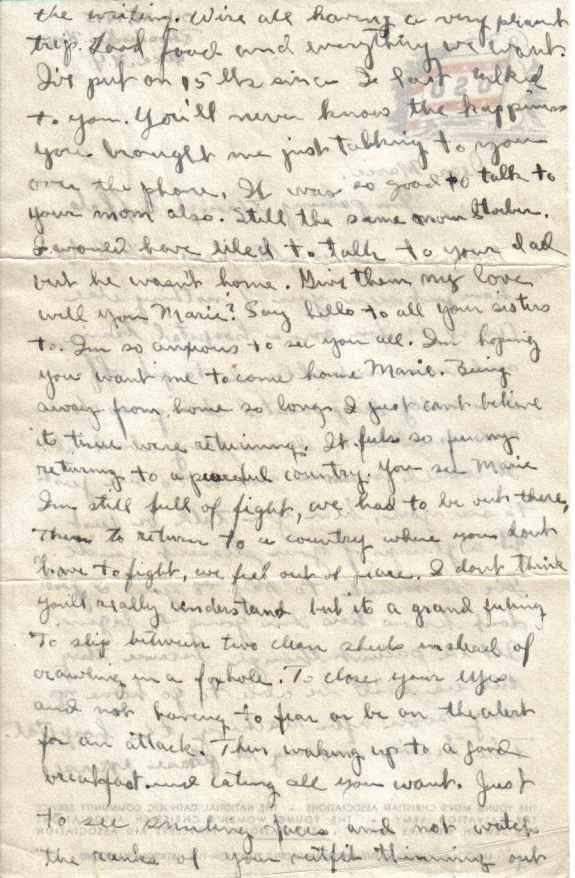 the writing. We're all having a very pleasant
trip. Good food and everything we want.
I've put on 15 lbs since I last talked
to you. You'll never know the happiness
you brought me just talking to you
over the phone. It was so good to talk to
your mom also. Still the same mom
I would have liked to talk to your dad
but he wasn't home. Give them my love
will you Marie? Say hello to all your sisters
to. I'm so anxious to see you all. I'm hoping
you want me to come home Marie. Being
away from home so long, I just cant believe
it time were returning. It feels so funny
returning to a peaceful country. You see Marie
I'm still full of fight, we had to be out there,
Then to return to a country where you dont
have to fight, we feel out of place. I dont think
you'll really understand but its a grand feeling
To slip between two clean sheets instead of
crawling in a foxhole. To close your eyes
and not having to fear or be on the alert
for an attack. Then waking up to a good
breakfast and eating all you want. Just
to see smiling faces and not watch
the ranks of your outfit thinning out